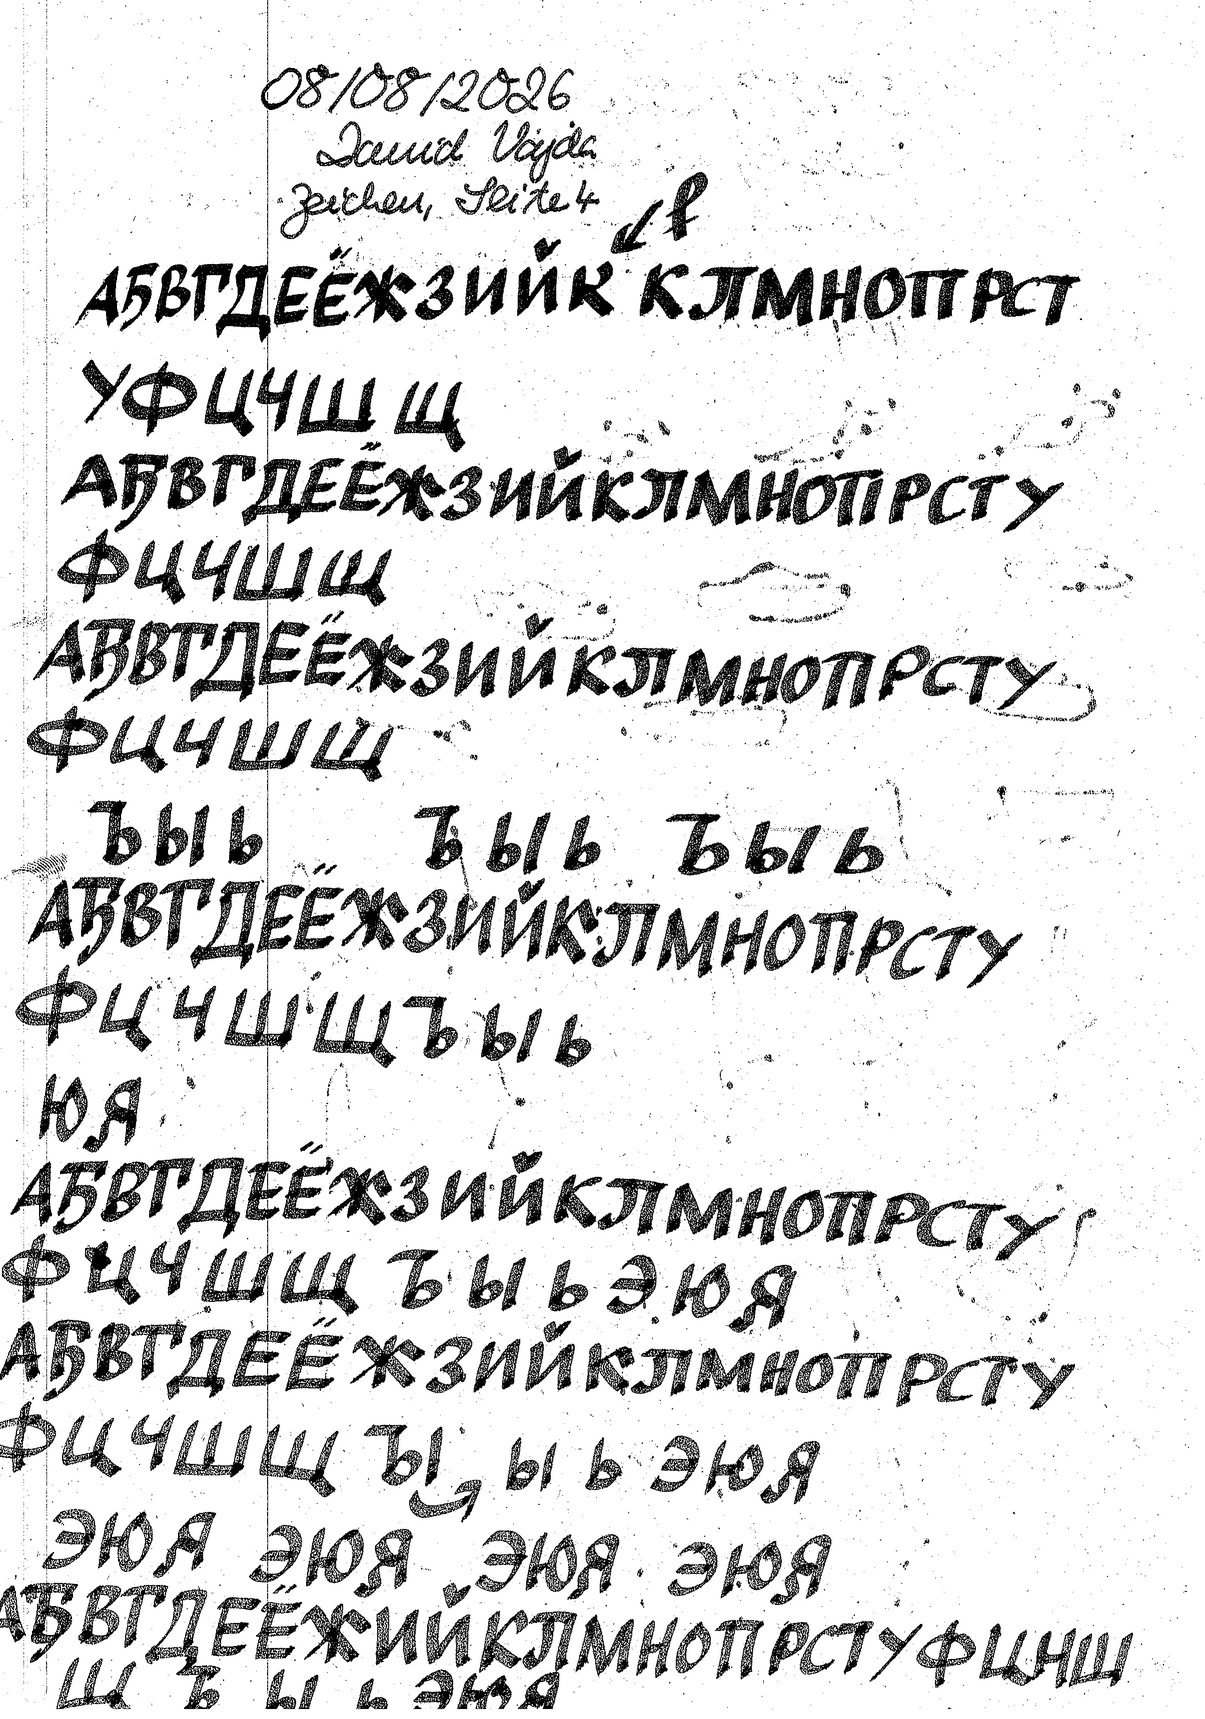 08/08/2026
David Vajda
Zeichen, Seite 4
АБВГДЕЁЖЗИЙК КЛМНОПРСТ
УФЦЧШЩ
АБВГДЕЁЖЗИЙКЛМНОПРСТУ
ФЦЧШЩ
АБВГДЕЁЖЗИЙКЛМНОПРСТУ
ФЦЧШЩ
ЪЫЬ ЪЫЬ ЪЫЬ
АБВГДЕЁЖЗИЙКЛМНОПРСТУ
ФЦЧШЩЪЫЬ
ЮЯ
АБВГДЕЁЖЗИЙКЛМНОПРСТУ
ФЦЧШЩ Ъ Ы Ь Э Ю Я
АБВГДЕЁЖЗИЙКЛМНОПРСТУ
ФЦЧШЩ ЪI Ы Ь ЭЮЯ
ЭЮЯ ЭЮЯ ЭЮЯ ЭЮЯ
АБВГДЕЁЖИЙКЛМНОПРСТУФЦЧШ
Щ Ъ Ы Ь ЭЮЯ